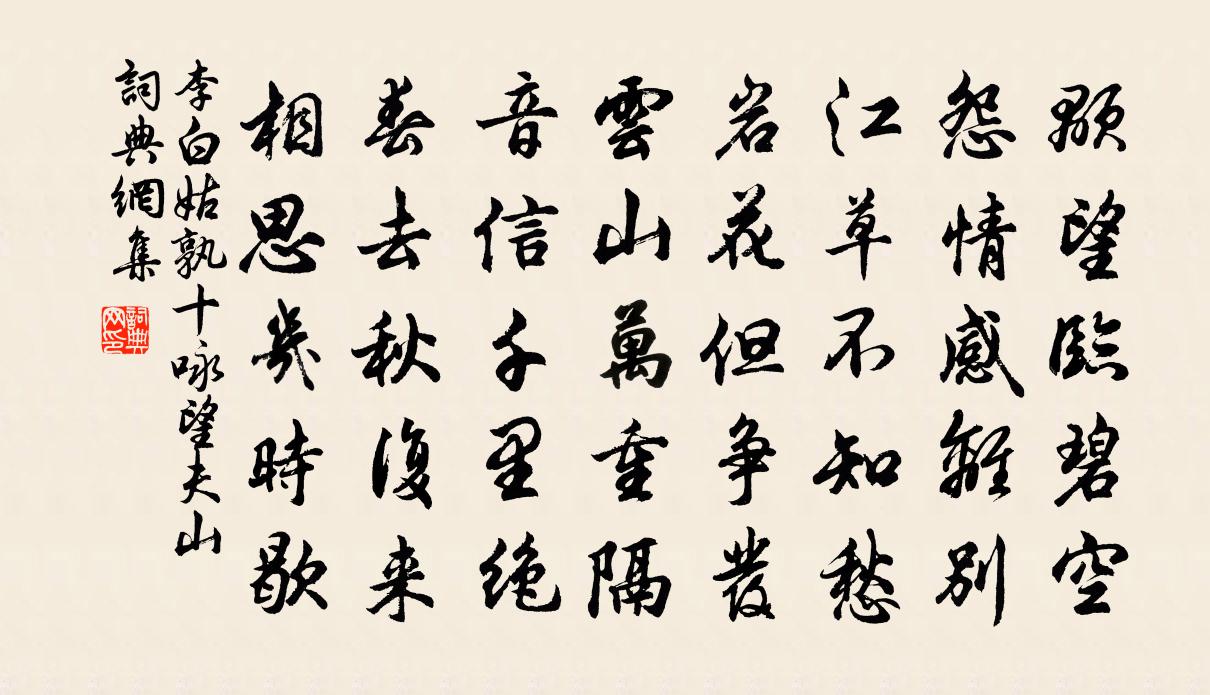 顒望臨碧空
怨情感離別
江草不知愁
岩花但争發
雲山萬重隔
音信千里绝
春去秋復来
相思幾時歇
李白姑孰十咏望夫山
詞典網集
詞典网印